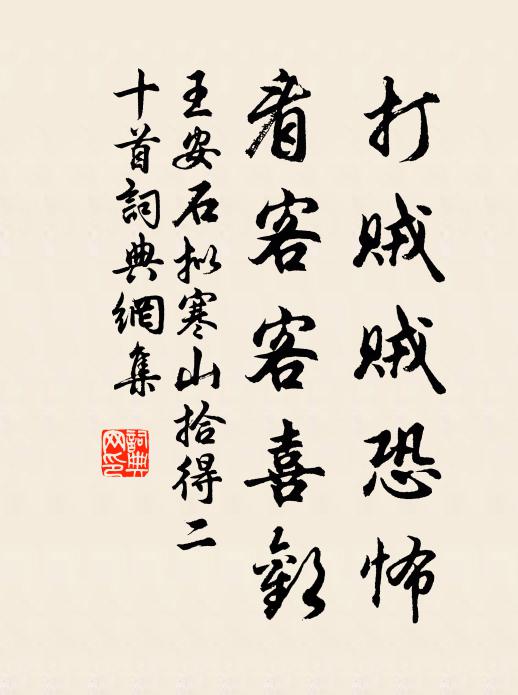 打賊賊恐怖
看客客喜歡
王安石拟寒山拾得二
十首詞典網集
詞典
网印